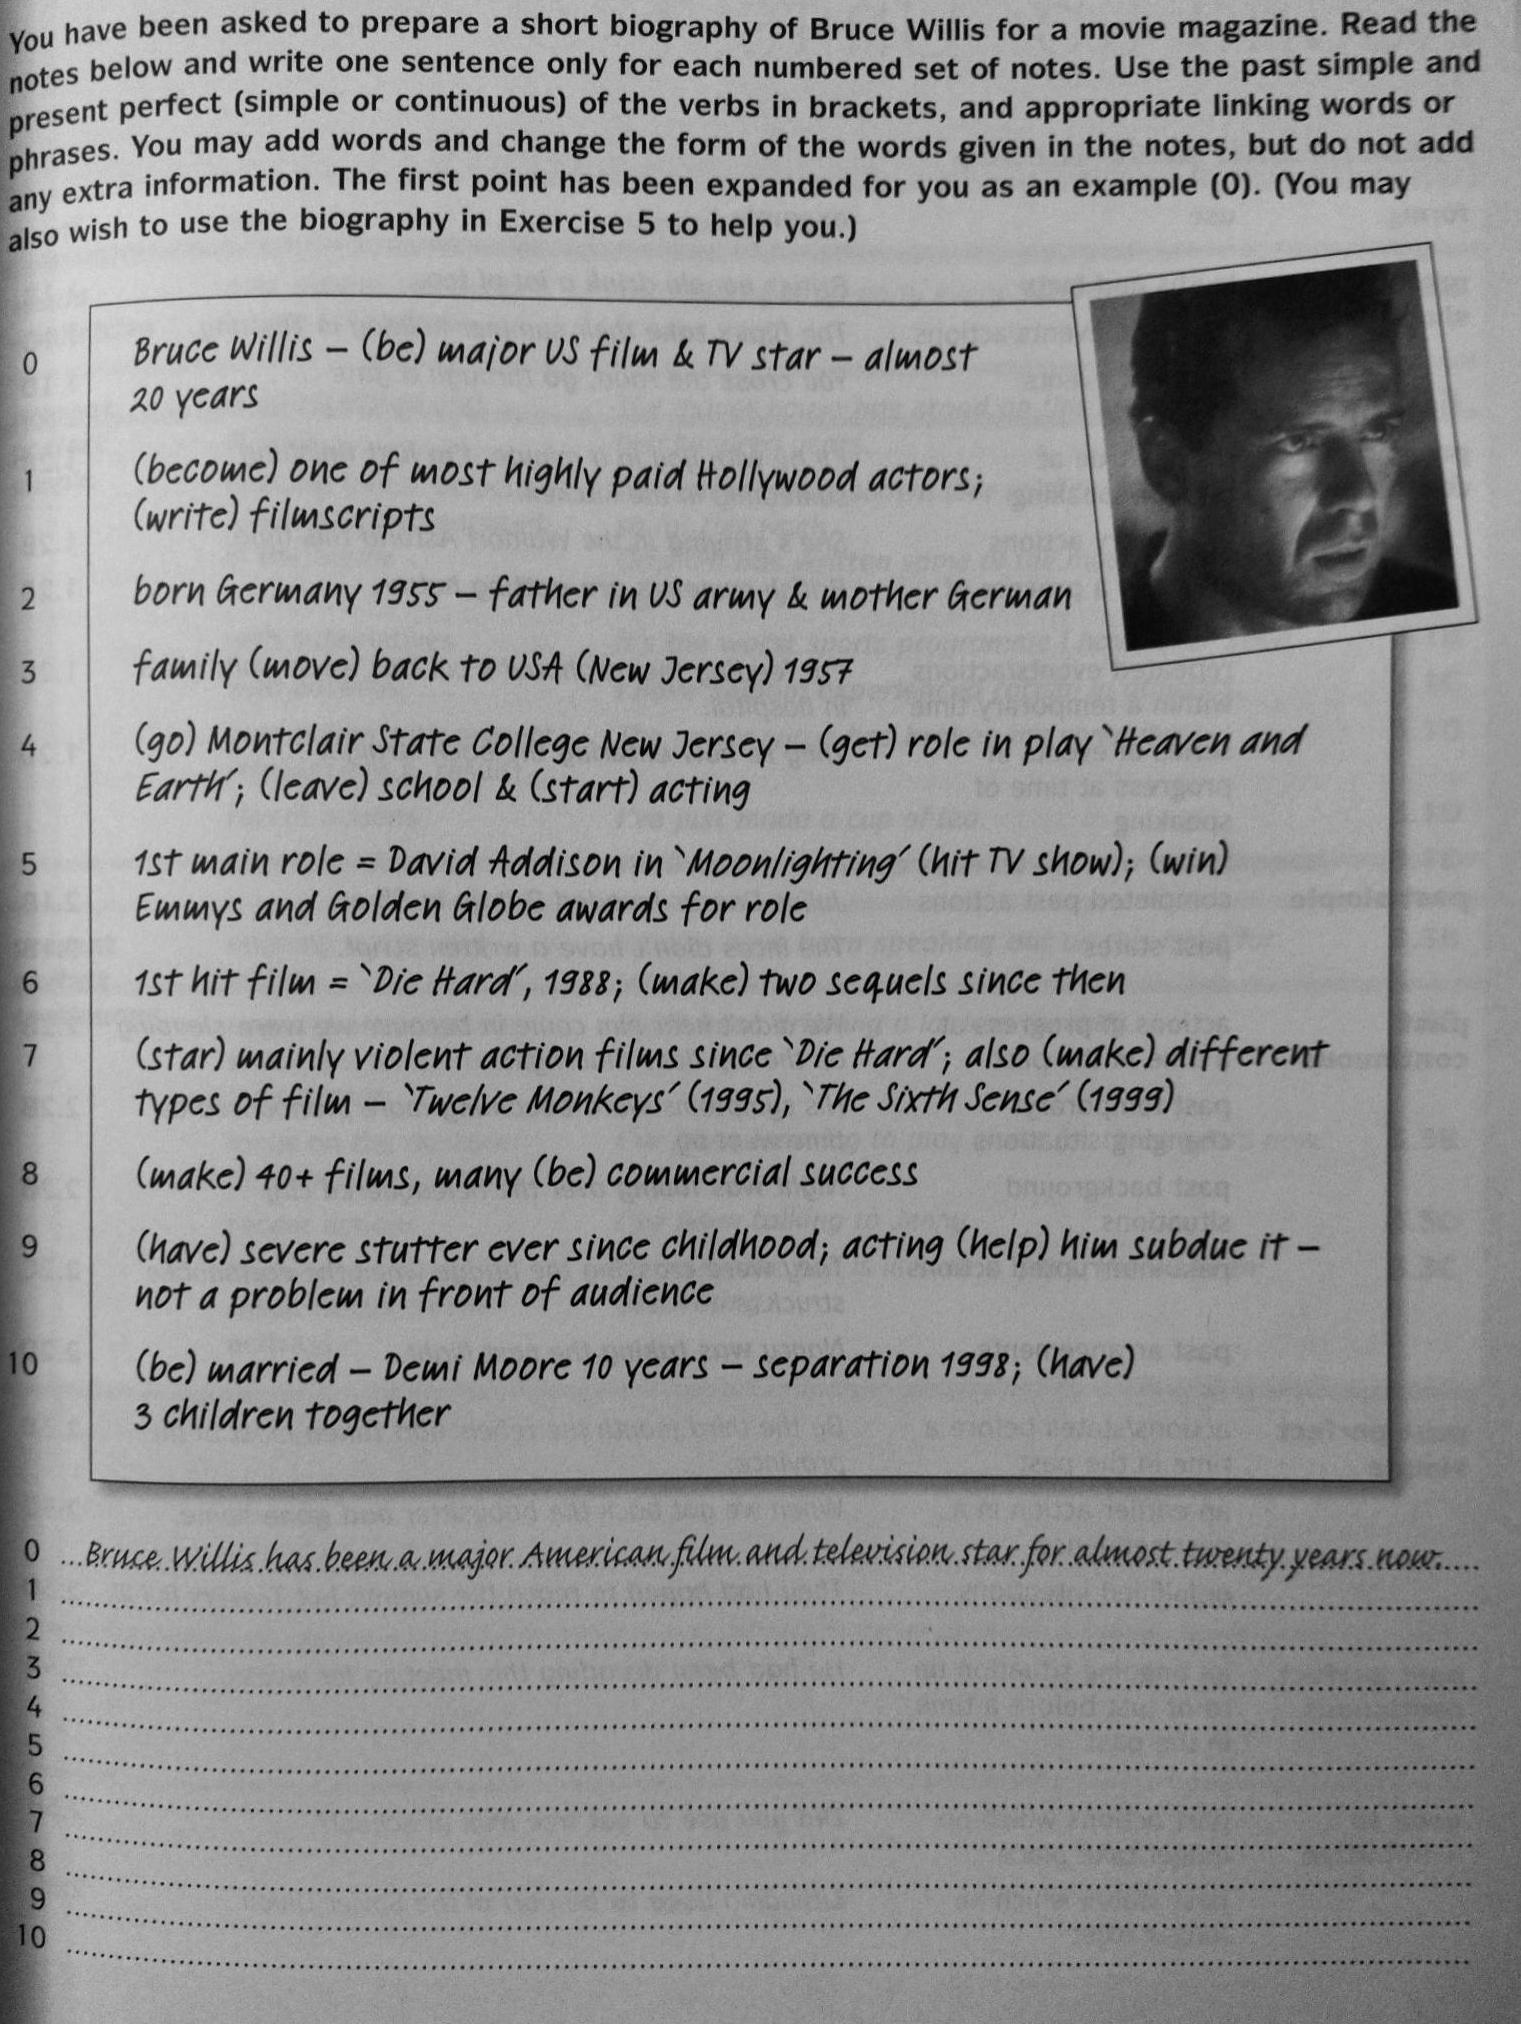 You have been asked to prepare a short biography of Bruce Willis for a movie magazine. Read the
notes below and write one sentence only for each numbered set of notes. Use the past simple and
present perfect (simple or continuous) of the verbs in brackets, and appropriate linking words or
phrases. You may add words and change the form of the words given in the notes, but do not add
any extra information. The first point has been expanded for you as an example (0). (You may
also wish to use the biography in Exercise 5 to help you.)
0 Bruce Willis – (be) major US film & TV star – almost
20 years
1 (become) one of most highly paid Hollywood actors;
(write) filmscripts
2 born Germany 1955 – father in US army & mother German
3 family (move) back to USA (New Jersey) 1957
4 (go) Montclair State College New Jersey – (get) role in play 'Heaven and
Earth'; (leave) school & (start) acting
5 1st main role = David Addison in 'Moonlighting' (hit TV show); (win)
Emmys and Golden Globe awards for role
6 1st hit film = 'Die Hard', 1988; (make) two sequels since then
7 (star) mainly violent action films since 'Die Hard'; also (make) different
types of film – 'Twelve Monkeys' (1995), 'The Sixth Sense' (1999)
8 (make) 40+ films, many (be) commercial success
9 (have) severe stutter ever since childhood; acting (help) him subdue it –
not a problem in front of audience
10 (be) married – Demi Moore 10 years – separation 1998; (have)
3 children together
0 ...Bruce Willis has been a major American film and television star for almost twenty years now.....
1
2
3
4
5
6
7
8
9
10